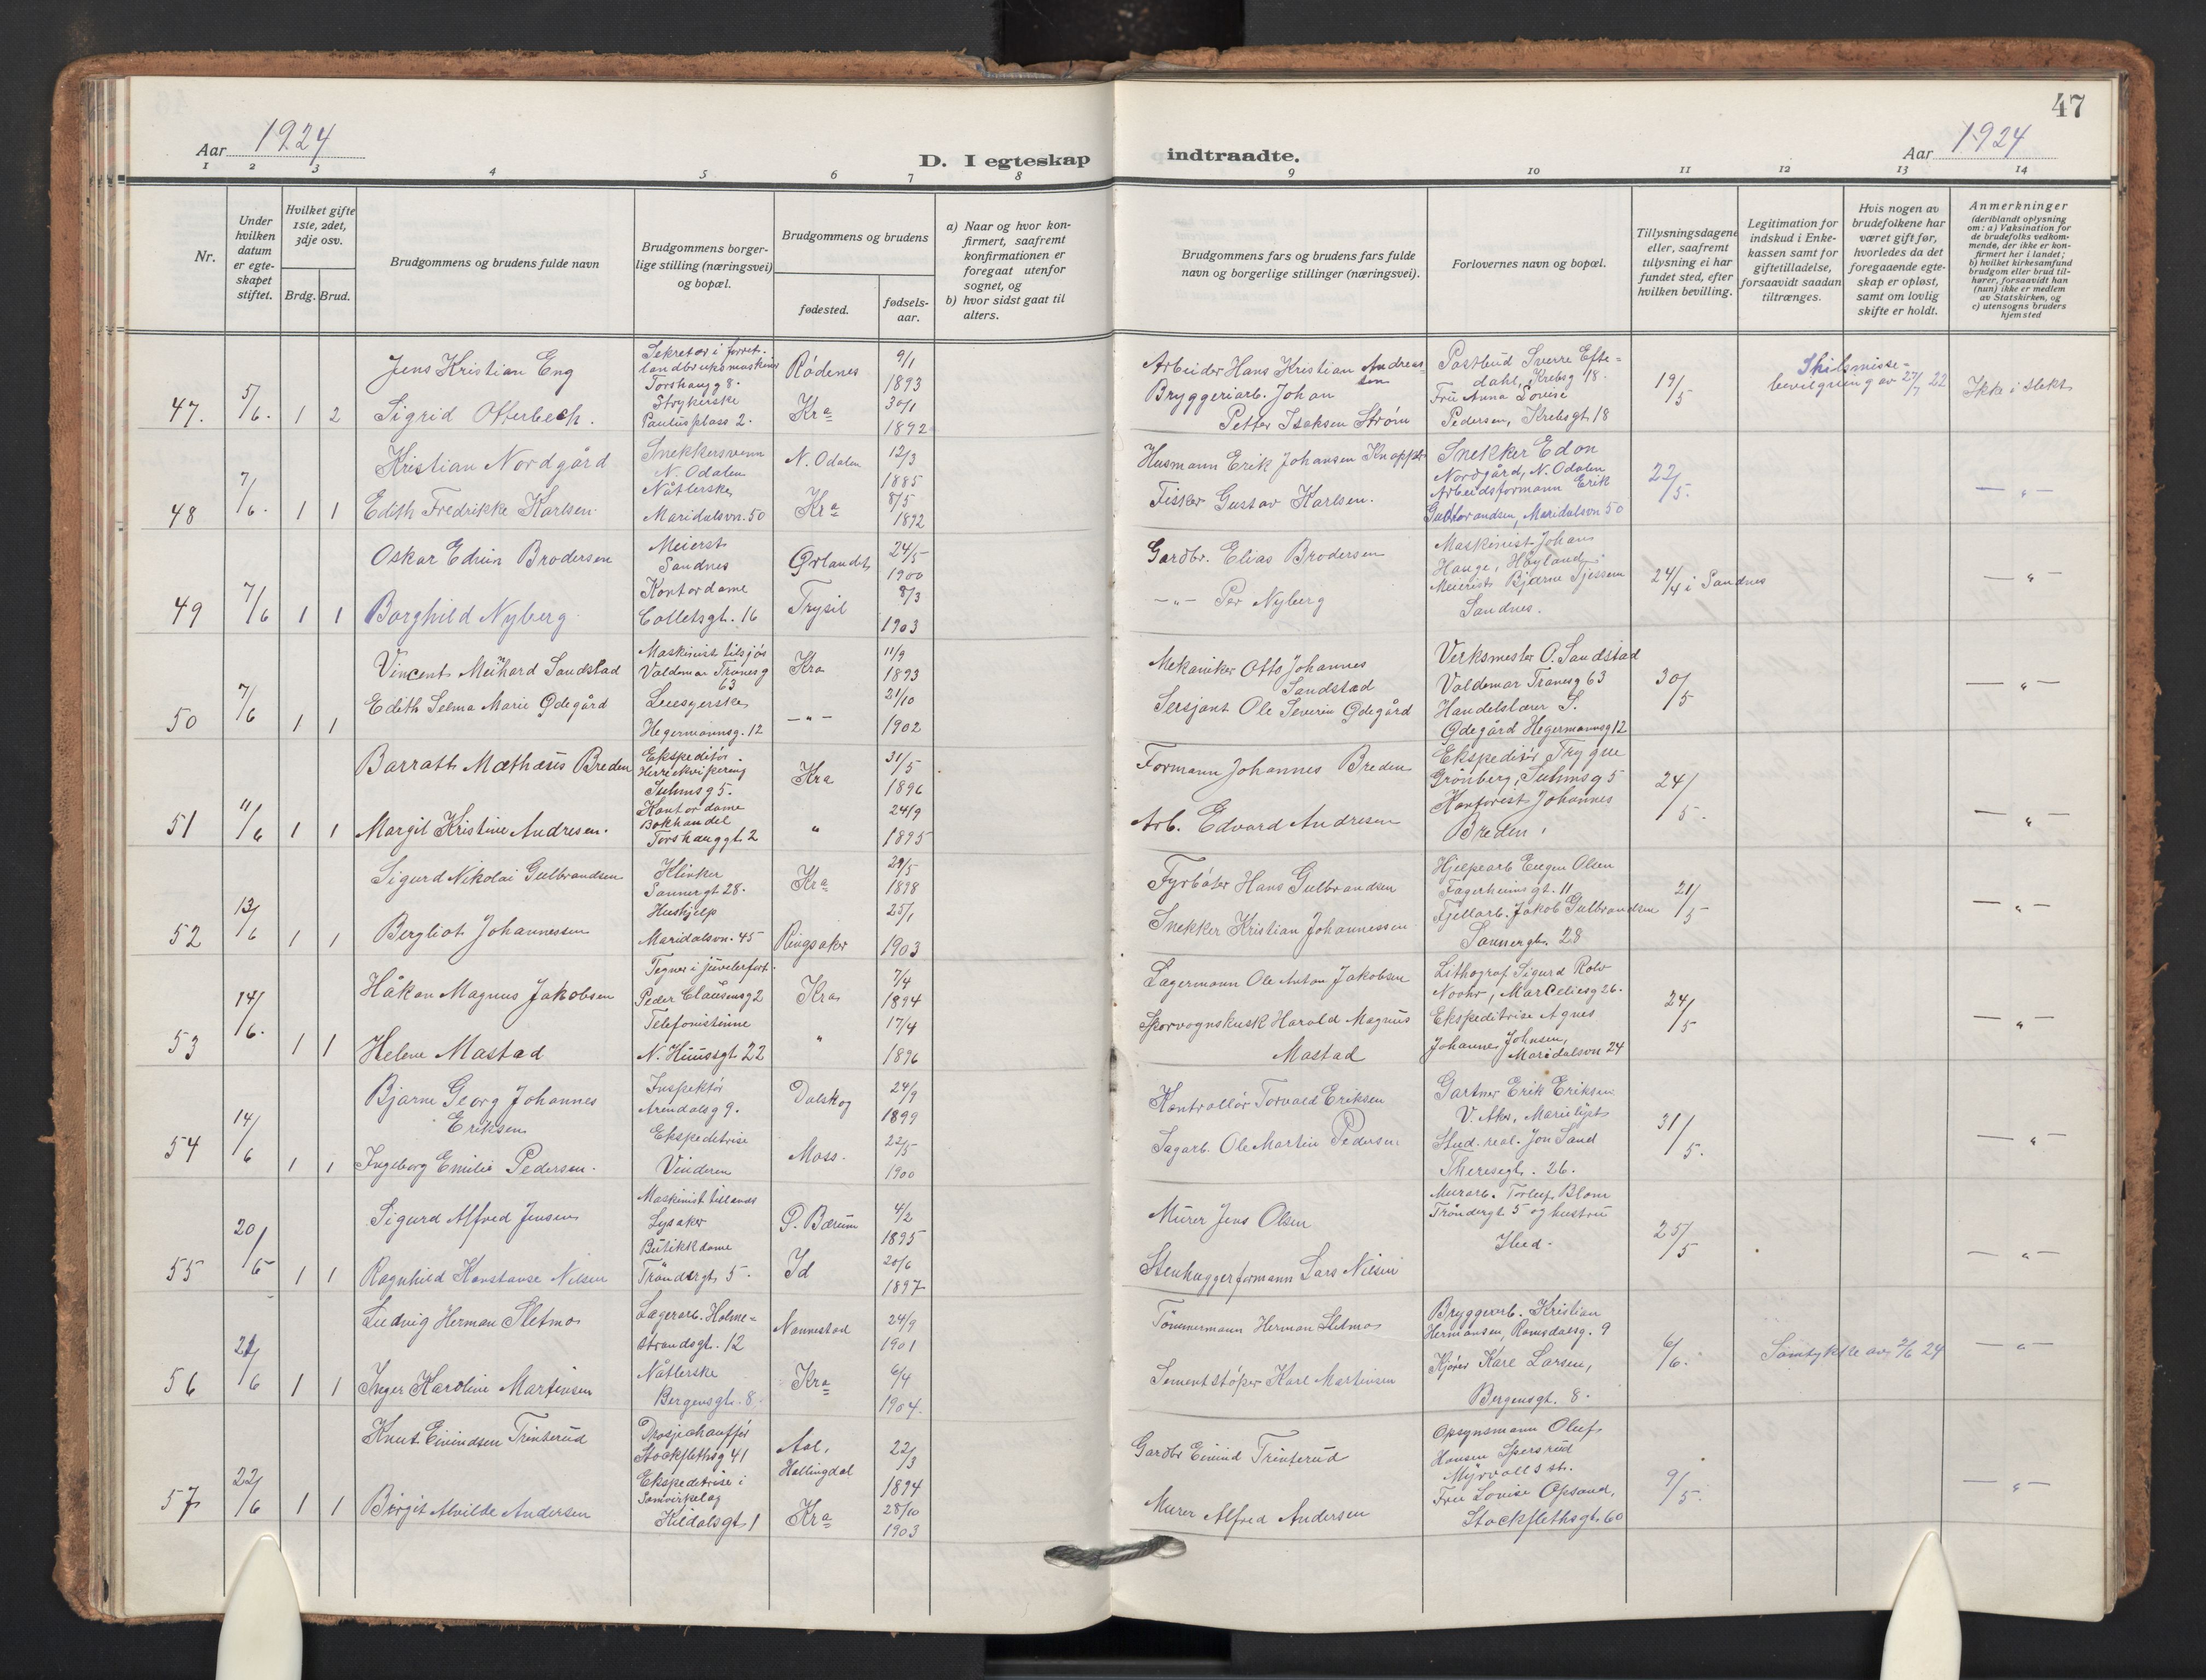 47
Aar 1924
D. I egteskap
indtraadte.
Aar 1924
1 2 3 4 5 6 7 8 9 10 11 12 13 14
Nr.
Under hvilken datum er egteskapet stiftet.
Hvilket gifte 1ste, 2det, 3dje osv.
Brdg. Brud.
Brudgommens og brudens fulde navn
Brudgommens borgerlige stilling (næringsvei) og bopæl.
Brudgommens og brudens
fødested.
fødselsaar.
a) Naar og hvor konfirmert, saafremt konfirmationen er foregaat utenfor sognet, og
b) hvor sidst gaat til alters.
Brudgommens fars og brudens fars fulde navn og borgerlige stillinger (næringsvei).
Forlovernes navn og bopæl.
Tillysningsdagene eller, saafremt tillysning ei har fundet sted, efter hvilken bevilling.
Legitimation for indskud i Enkekassen samt for giftetilladelse, forsaavidt saadan tiltrænges.
Hvis nogen av brudefolkene har været gift før, hvorledes da det foregaaende egteskap er opløst, samt om lovlig skifte er holdt.
Anmerkninger
(deriblandt oplysning om: a) Vaksination for de brudefolks vedkommende, der ikke er konfirmert her i landet; b) hvilket kirkesamfund brudgom eller brud tilhører, forsaavidt han (hun) ikke er medlem av Statskirken, og c) utensogns bruders hjemsted
47. 5/6. 1 2
Jens Kristian Eng
Sekretær i forret. landbruksmaskiner
Torshaugg 8.
Rødenes
9/1 1893
Arbeider Hans Kristian Andreassen
Postbud Sverre Eftedahl, Krebsg 18.
Sigrid Otterbech.
Strykerske
Paulus plass 2.
Kra
30/1 1892
Bryggeriarb. Johan Petter Isaksen Strøm
Fru Anna Lovise Pedersen, Krebsgt 18
19/5
Skilsmissebevilgning av 27/7 22
Ikke i slekt
48 7/6. 1 1
Kristian Nordgård
Snekkersvenn
N. Odalen
N. Odalen
12/3 1885
Husmann Erik Johansen Knapper
Snekker Edon Nordgård, N. Odalen
Edith Fredrikke Karlsen
Nåtlerske
Maridalsvn. 50
Kra
8/5 1892
Fisker Gustav Karlsen.
Arbeidsformann Erik Gulbrandsen, Maridalsvn 50
22/5.
— „ —
49 7/6 1 1
Oskar Edvin Brodersen
Meierist
Sandnes
Ørlandet
24/5 1900
Gardbr. Elias Brodersen
Maskinist Johan Hauge, Høyland
Borghild Nyberg
Kontordame
Colletsgt. 16
Trysil
8/3 1903
— „ — Per Nyberg
Meierist Bjarne Tjessem
Sandnes.
24/4 i Sandnes
— „ —
50 7/6 1 1
Vincent Meihard Sandstad
Maskinist tilsjøs
Valdemar Tranesg 63
Kra
11/9 1893
Mekaniker Otto Johannes Sandstad
Verksmester O. Sandstad
Valdemar Tranesg 63
Edith Selma Marie Ødegård
Hegermannsg. 12
— „ —
21/10 1902
Sersjant Ole Severin Ødegård
Handelslærer S. Ødegård Hegermannsg 12
30/5
— „ —
51 11/6 1 1
Barrath Mathæus Breden
Ekspeditør Herreekvipering
Suhmsg 5.
Kra
31/5 1896
Formann Johannes Breden
Ekspeditør Trygve Grønberg, Suhmsg 5
Margit Kristine Andresen.
Kontordame Bokhandel
Torshauggt 2
„
24/9 1895
Arb. Edvard Andresen
Kontorist Johannes Breden
24/5.
— „ —
52 13/6 1 1
Sigurd Nikolai Gulbrandsen
Klinker
Sannergt 28.
Kra
29/5 1898
Fyrbøter Hans Gulbrandsen
Hjelpearb Eugen Olsen
Fagerheimsgt. 11
Bergliot Johannessen
Hushjelp
Maridalsvn. 45
Ringsaker
25/1 1903
Snekker Kristian Johannessen
Fjellarb. Jakob Gulbrandsen
Sannergt. 28
21/5
— „ —
53 14/6. 1 1
Håkon Magnus Jakobsen
Tegner i juvelerforr.
Peder Claüsensg 2
Kra
7/4 1894
Lagermann Ole Anton Jakobsen
Lithograf Sigurd Rolv
Marceliesg 26.
Helene Mastad
Telefonistinne
N. Huusgt 22
„
17/4 1896
Sporvognskusk Harald Magnus Mastad
Ekspeditrise Agnes Johanne Johnsen,
Maridalsvn 24
24/5
— „ —
54 14/6 1 1
Bjarne Georg Johannes Eriksen
Inspektør
Arendalsg 9.
Dalskog
24/9 1899
Kontrollør Torvald Eriksen
Gartner Erik Eriksen
V. Aker, Marielyst
Ingeborg Emilie Pedersen.
Ekspeditrise
Vinderen
Moss.
22/5 1900
Sagarb. Ole Martin Pedersen
Stud. real. Jon Sand
Theresegt. 26.
31/5.
— „ —
55 20/6 1 1
Sigurd Alfred Jensen
Maskinist tillands
Lysaker
Ø. Bærum
4/2 1895
Murer Jens Olsen
Murarb. Torleif Blom
Trøndergt 5 og hustru
Ragnhild Konstanse Nilsen
Butikkdame
Trøndergt 5.
Id
20/6 1897
Stenhuggerformann Lars Nilsen
Ibid.
25/5
— „ —
56 21/6 1 1
Ludvig Herman Sletmo
Lagerarb. Holmestrandsgt. 12
Nannestad
24/9 1901
Tømmermann Herman Sletmo
Bryggearb. Kristian Hermansen, Romsdalsg. 9
Inger Karoline Martinsen
Nåtlerske
Bergensgt. 8.
Kra
6/4 1904.
Sementstøper Karl Martinsen
Kjører Karl Larsen,
Bergensgt. 8.
6/6.
Samtykke av 2/6 24
— „ —
57 22/6 1 1
Knut Eivindsen Trinterud
Drosjechauffør
Stockflethsg 41
Aal, Hallingdal
22/3 1894
Gardbr Eivind Trinterud
Opsynsmann Oluf Hansen Spersrud
Myrvoll st.
Birgit Alvilde Andersen
Ekspeditrise i Samvirkelag
Kildalsgt 1
Kra
28/10 1903
Murer Alfred Andersen
Fru Lovise Opsand,
Stockflethsgt 60
9/5.
— „ —